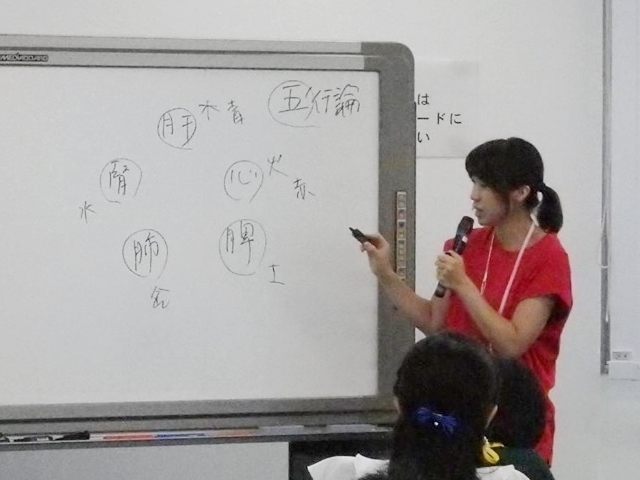 MEDIABOARD
五行論
肝 木 青
心 火 赤
脾 土
肺 金
腎 水
は
ードに
い